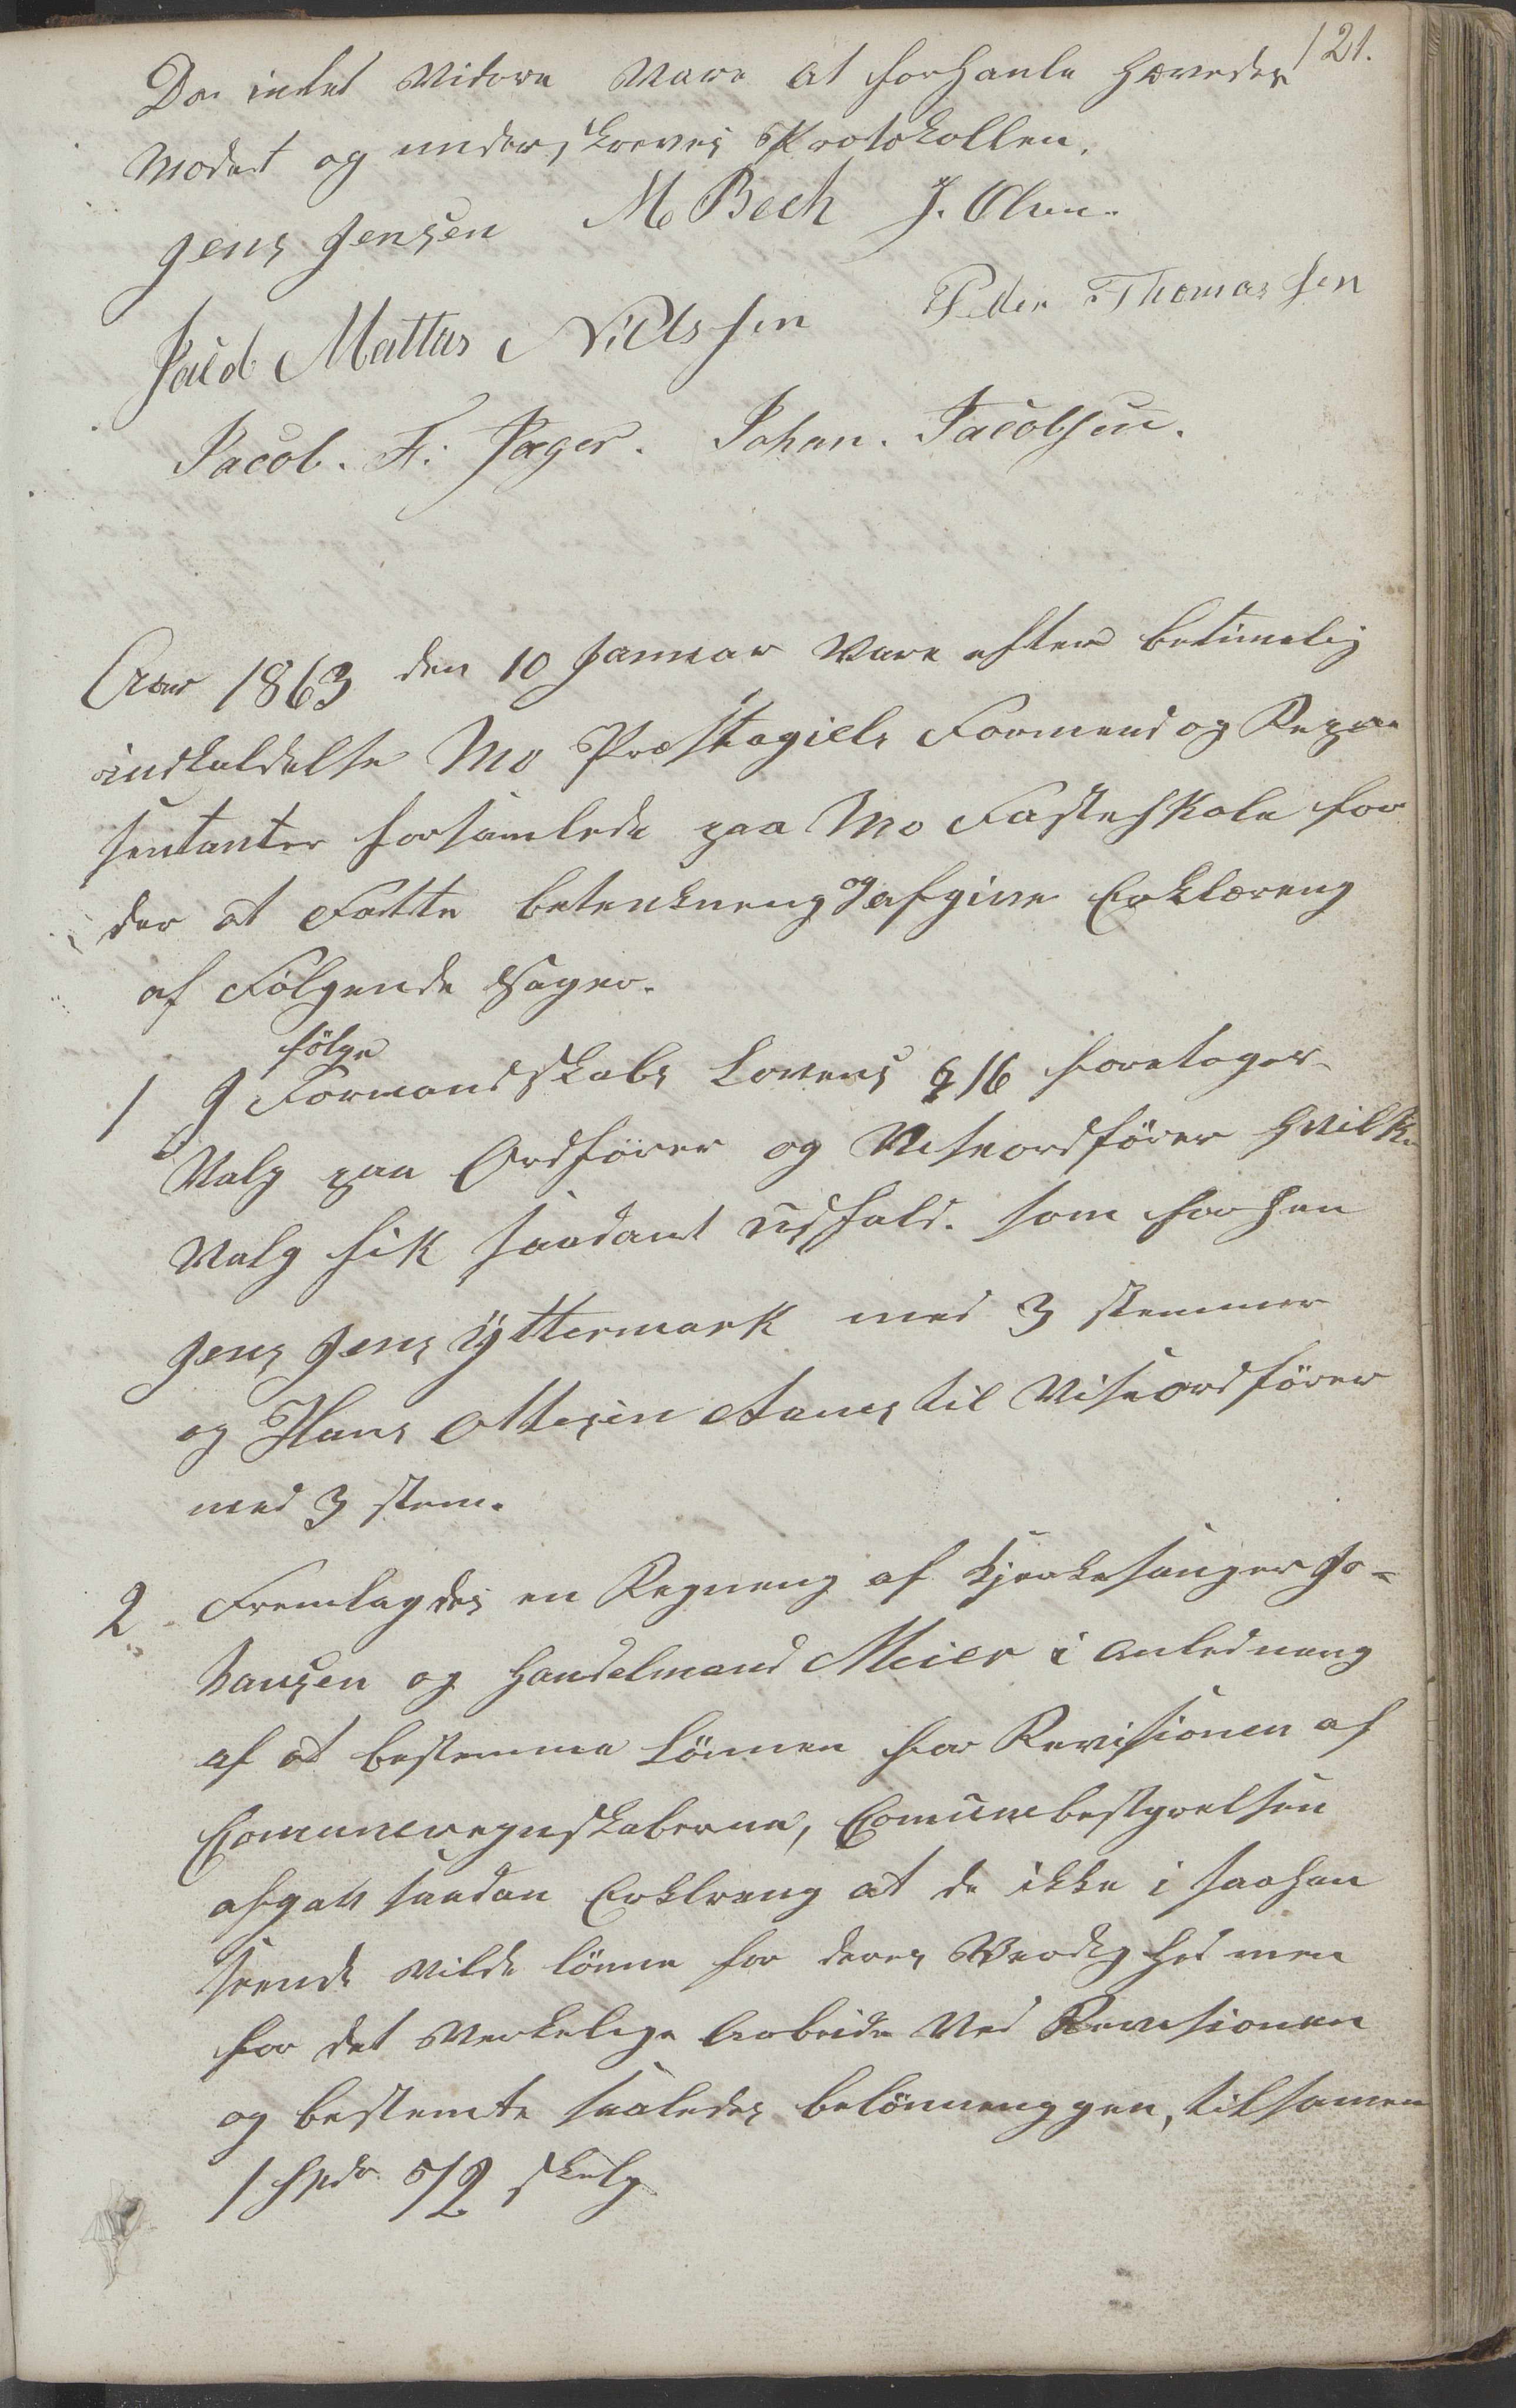 121.
Da intet Videre Vare at forhanle hævedes
Mødet og underskreves Protokollen.
Jens Jensen M Bech J. Olsen.
Mattias Nielssen Peder Thomassen
Jacob. F. Jæger. Johan. Jacobsen.
Aar 1863 den 10 Januar Vare efter betimelig
indkaldelse Mo Præstegiels Formend og Repræ
sentanter forsamlede paa Mo Fasteskole for
der at Fatte betenkneng og afgive Erklæreng
af Følgende Sager.
1 I følge Formandskabs Lovens § 16 foretages
Valg paa Ordfører og Viseordfører hvilke
Valg fik saadant udfald. som forhen
Jens Jens Yttermark med 3 stemmer
og Hans Ottesen Aanes til Viseordfører
med 3 stem.
2 Fremlagdes en Regneng af Kjerkesanger Jo-
hansen og Handelmand Meier i anledneng
af at bestemme Lønnen for Revisionen af
Comuneregnskaberne, Comunebestyrelsen
afgav saadan Erklereng at de ikke i saahen
seende vilde lønne for deres Verdighed men
for det Verkelige Arbeide Ved Revisionen
og bestemte saaledes belønnenggen, tilsamen
1 Spdr 52 skelg